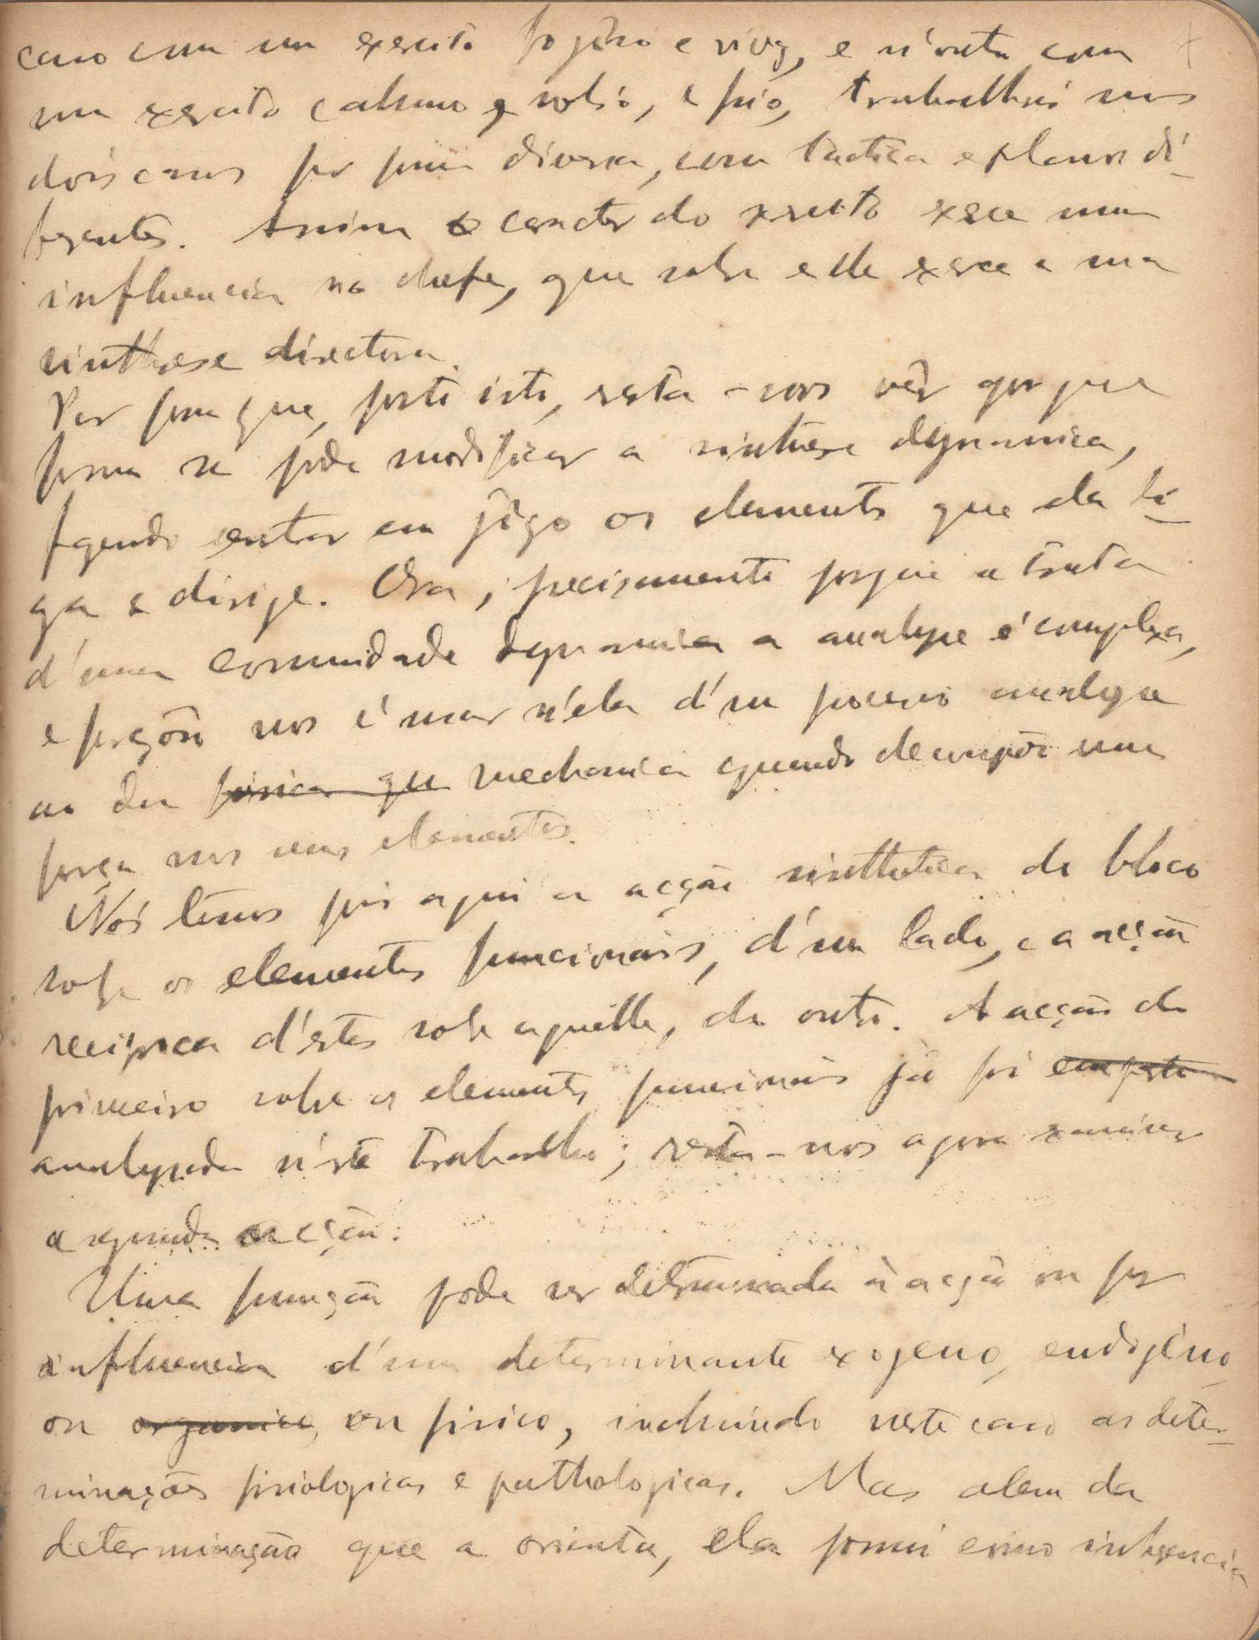 caso com um exercito fogôso e vivaz, e n'outro com
um exercito calmo e sobrio, e frio, trabalhará nos
dois casos por forma diversa, com tactica e planos di-
ferentes. Assim o caracter do exercito exerce uma
influencia no chefe, que sobre elle exerce a sua
sinthese directora.
Por forma que, posto isto, resta-nos vêr por que
forma se póde modificar a sinthese dynamica,
fazendo entrar em jôgo os elementos que ela li-
ga e dirige. Ora, precisamente porque se trata
d'uma comunidade dynamica a analyse é complexa,
e forçôso nos é usar n'ela d'um processo analogo
ao da fisica que mechanica quando decompõe uma
força nos seus elementos.
Nós têmos pois aqui a acção sinthetica do bloco
sobre os elementos funcionais, d'um lado, e a acção
reciproca d'estes sobre aquelle, do outro. A acção do
primeiro sobre os elementos funcionais já foi em parte
analysada n'este trabalho; resta-nos agora examinar
a segunda acção.
Uma função póde ser determinada á acção ou por
influencia d'um determinante exogeno, endogêno,
ou organico, ou fisico, incluindo neste caso as deter-
minações fisiologicas e pathologicas. Mas alem da
determinação que a orienta, ela possui como